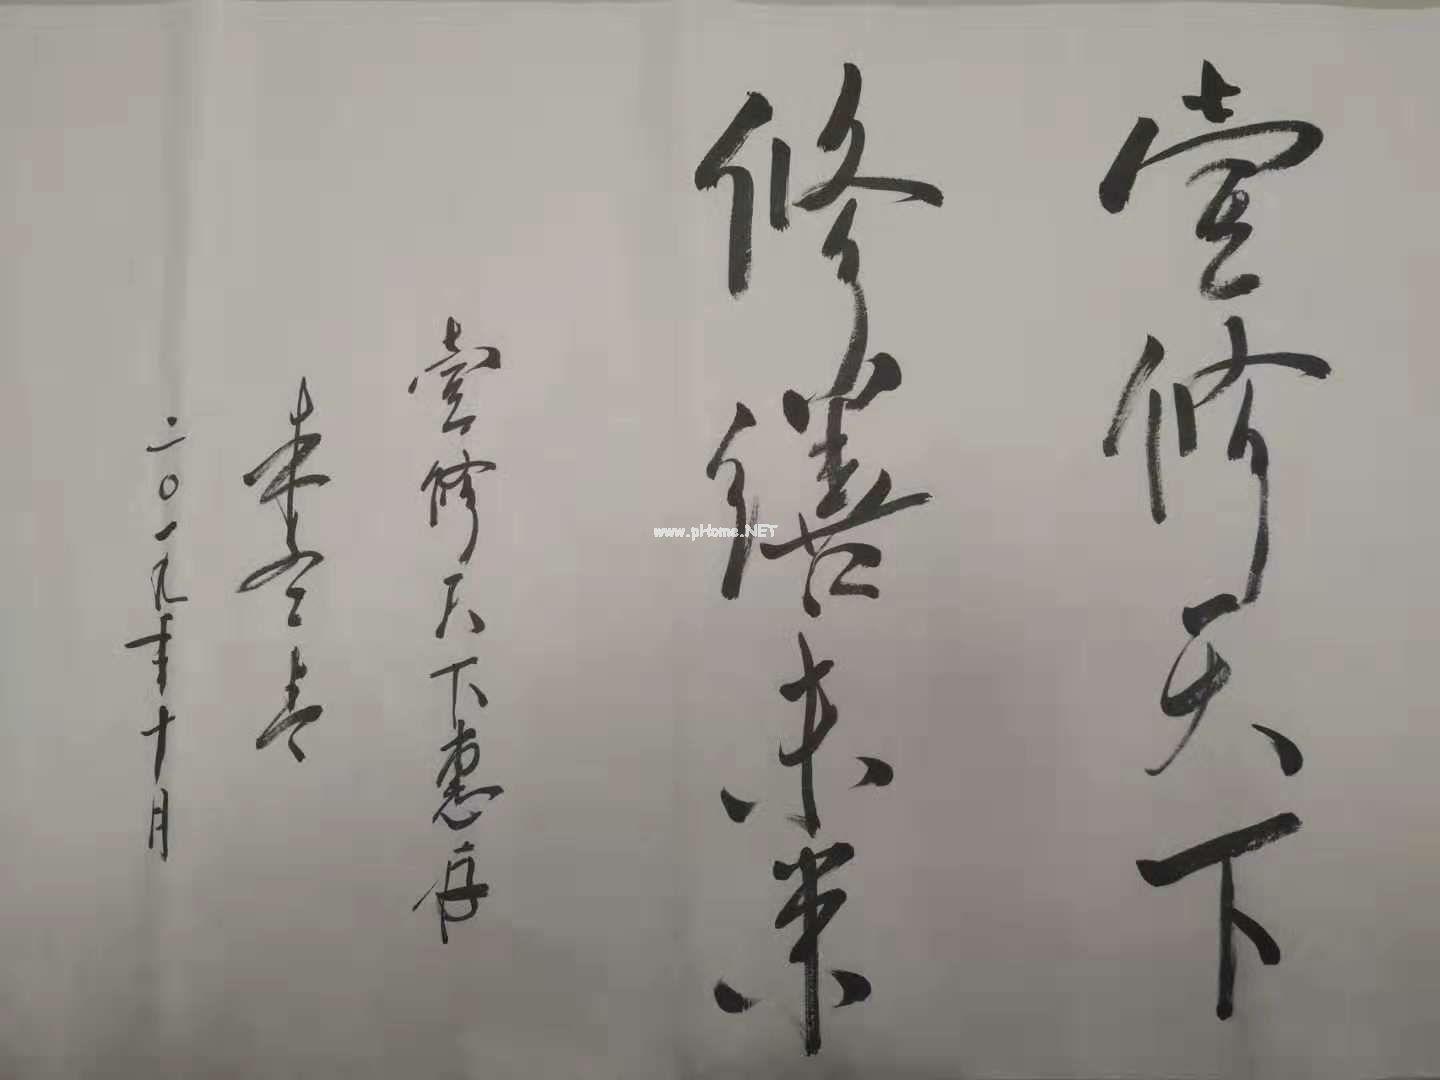 壹修天下
修缮未来
壹修天下惠存
二〇一九年十月
www.pHome.NET